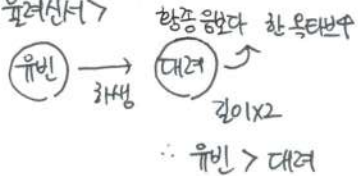 율려신서>
황종 음보다 한 옥타브 ↑
유빈 → 대려
하생
길이x2
∴ 유빈 > 대려